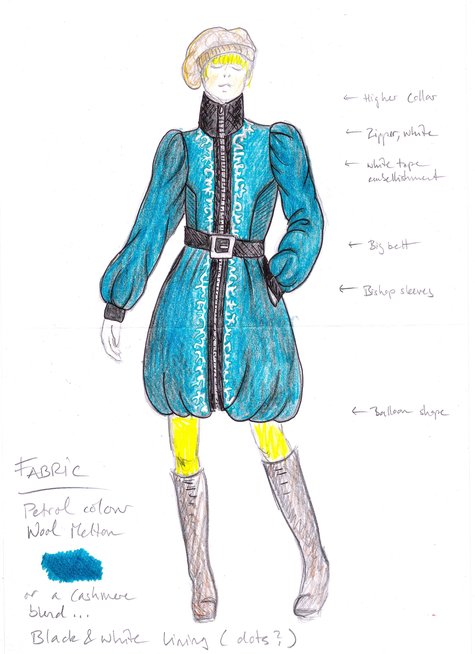 ← Higher Collar
← Zipper, white
← White tape
embellishment
← Big belt
← Bishop sleeves
← Balloon shape
FABRIC
Petrol colour
Wool Melton
or a Cashmere
blend...
Black & White lining (dots?)